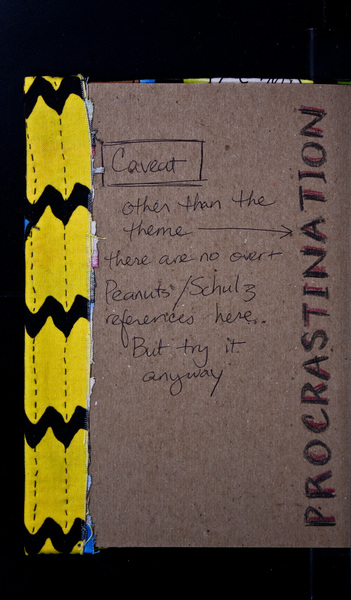 Caveat
other than the
theme
there are no overt
Peanuts/Schulz
references here.
But try it
anyway
PROCRASTINATION